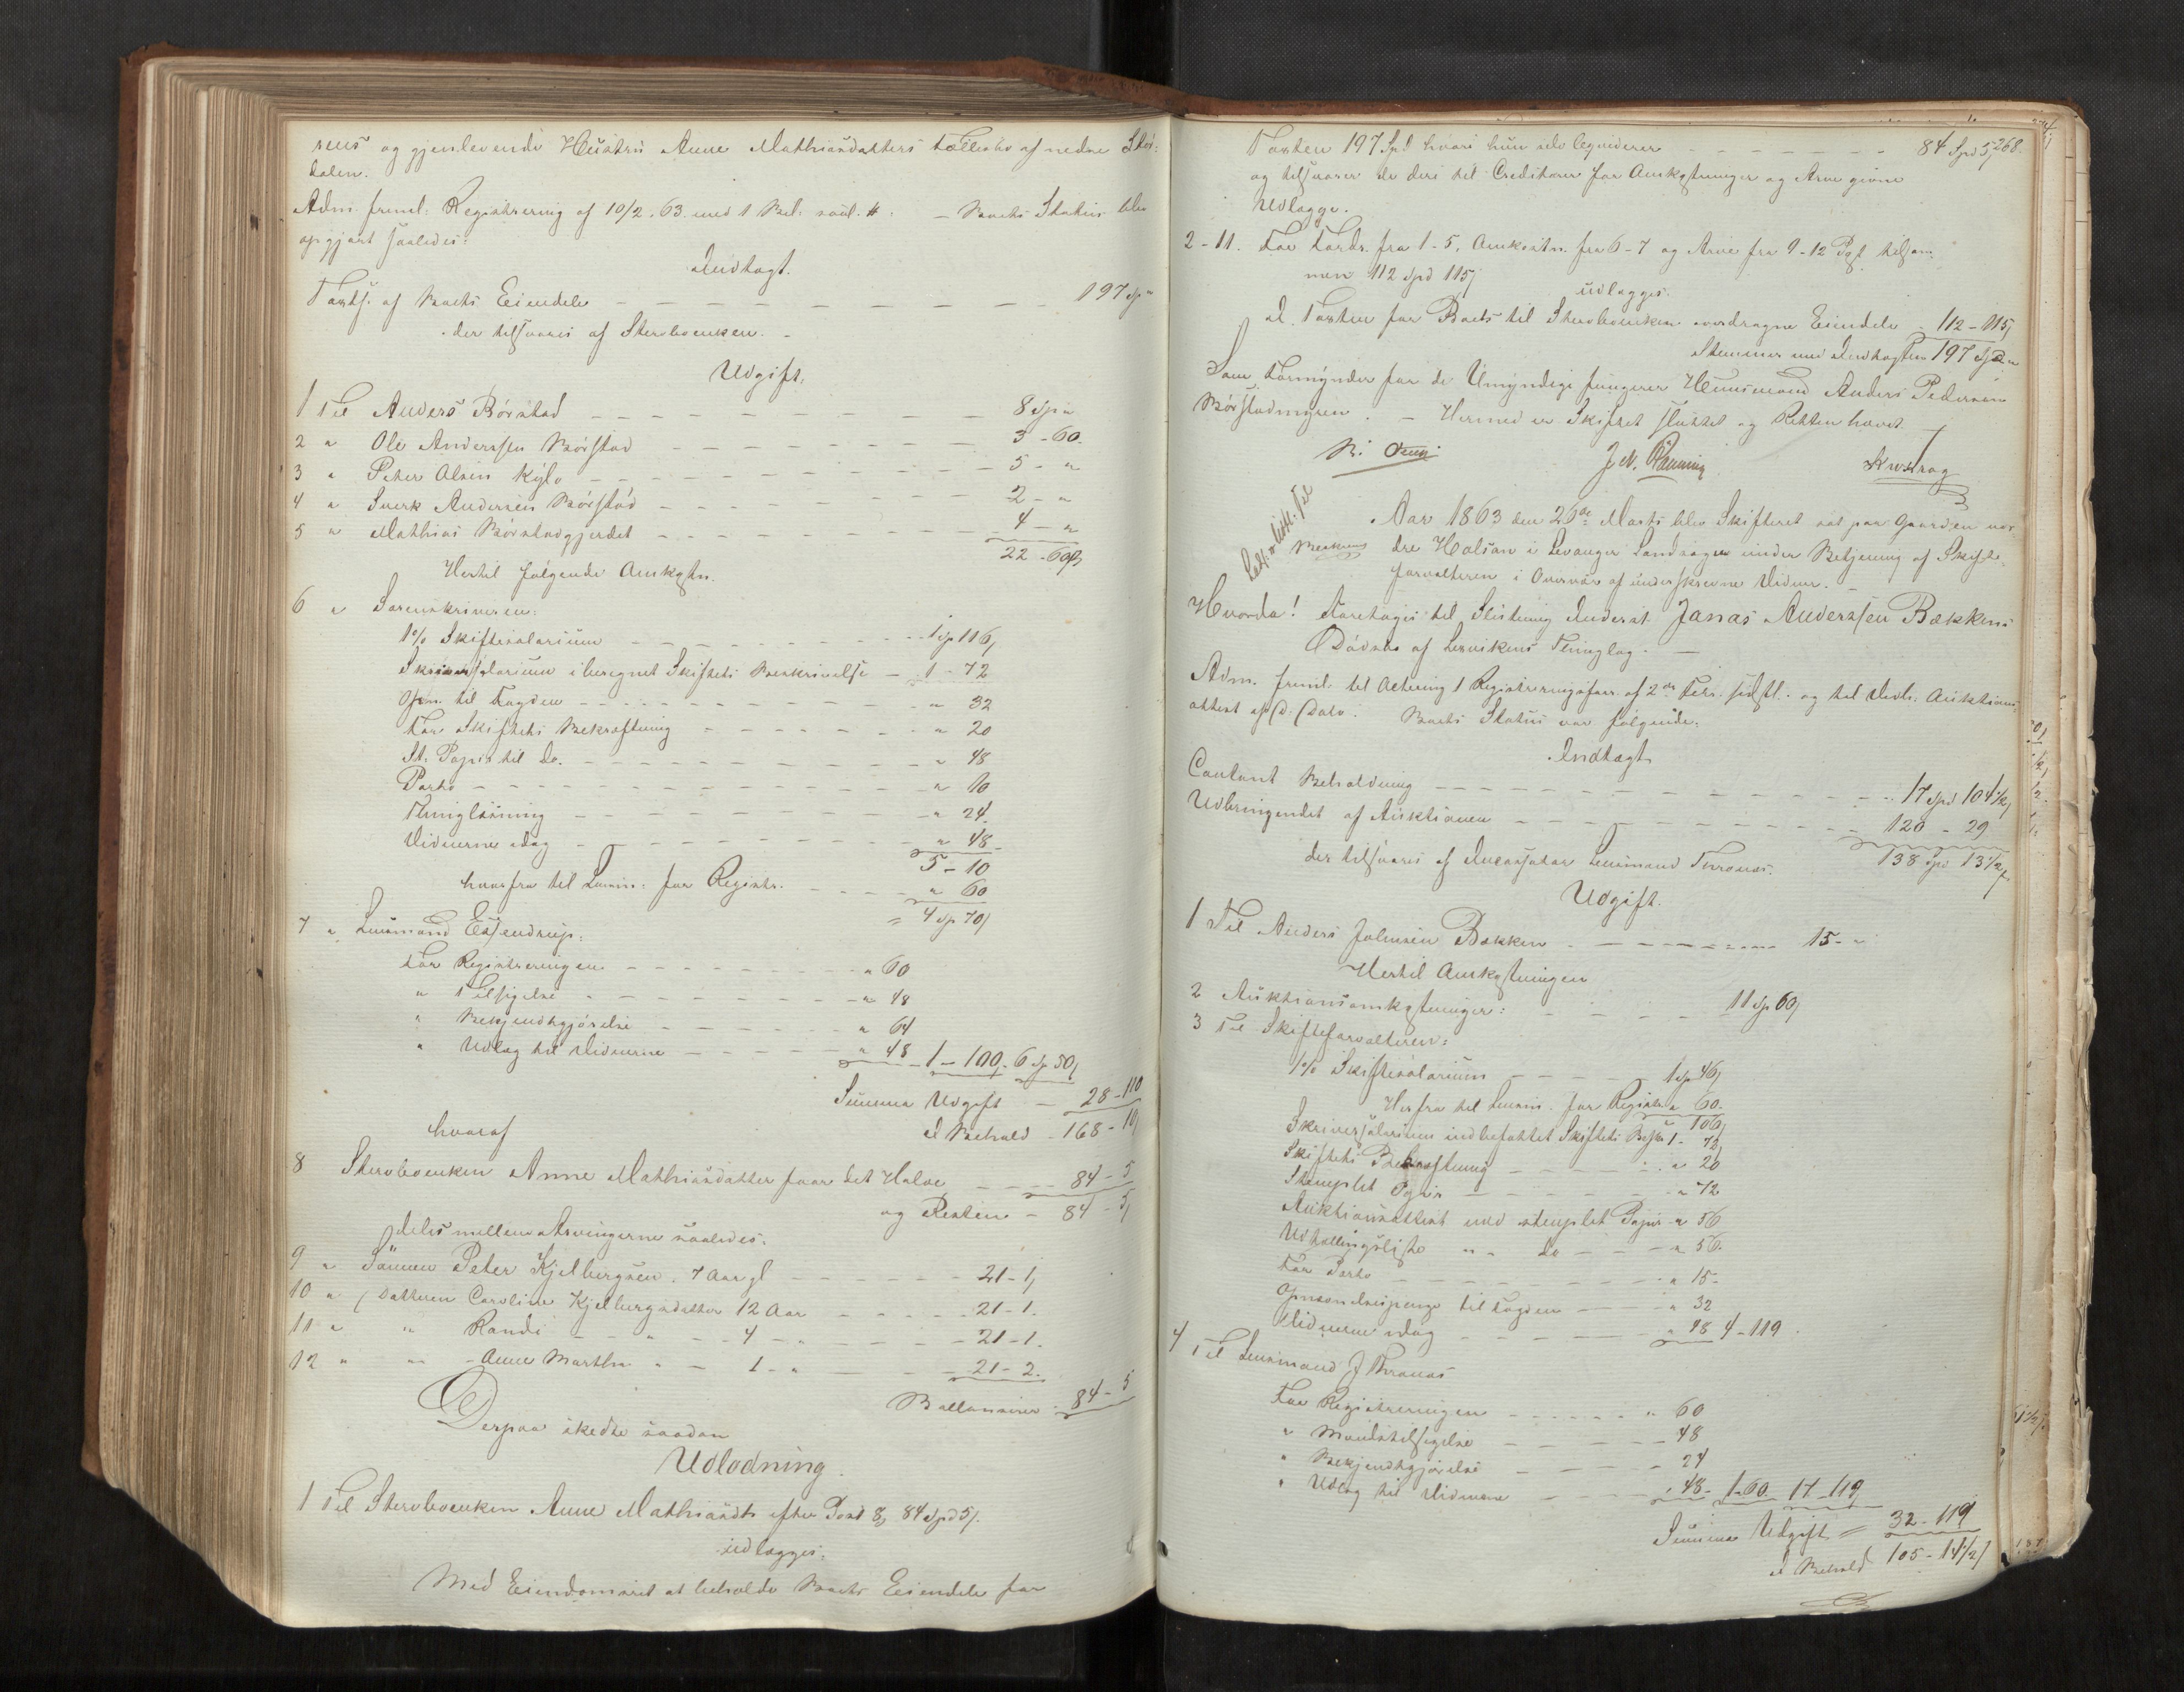 sens og gjenlevende Hustru Anne Mathiasdatters Fællesbo af nedre Stør-
dalen.
Adm. freml: Registrering af 10/2. 63. med 1 Bil. saal. #. — Boets Status blev
opgjort saaledes:
Indtægt.
Taxts. af Boets Eiendele — — — 197 Sp "
der tilsvares af Stervboenken. —
Udgift.
1 Til Anders Börstad — — — 8 Sp "
2 " Ole Anderssen Börstad — — — 3 - 60.
3 " Peter Olsen Kylo — — — 5 - "
4 " Sverk Andersen Börstad — — — 2 - "
5 " Mathias Börstadgjerdet — — — 4 - "
22 - 60 ß
Hertil følgende Omkostn.
6 " Sorenskriveren:
1% Skiftesalarium — — — 1 sp 116,
Skriversalarium iberegnet Skiftets Beskrivelse — 1 - 72
Opm. til Fogden — — — " 32
For Skiftets Bekræftning — — — " 20
St. Papir til do. — — — " 48
Porto — — — " 10
Thinglæsning — — — " 24.
Vidnerne idag — — — " 48 -
5 - 10
hvorfra til Lensm: for Registr. — — " 60
= 4 sp 70,
7 " Lensmand Essendrup:
For Registreringen — — — " 60
" Tilsigelse — — — " 48
" Bekjendtgjørelse — — — " 64
" Udlæg til Vidnerne — — — " 48 - 1 - 100. 6 sp 50,
Summa Udgift — 28 - 110
hvoraf
I Behold - 168 - 10,
8 Stervboenken Anne Mathiasdatter faar det Halve — — 84 - 5
og Resten — 84 - 5,
deles mellem Arvingerne saaledes:
9 " Sönnen Peter Kjelbergsen. 7 Aar gl — — — 21 - 1,
10 " Datteren Caroline Kjelbergsdatter 12 Aar — — — 21 - 1.
11 " " Randi — " — 4 - " — — 21 - 1.
12 " " - Anne Martha " — 1 - " — — 21 - 2.
Ballancerer - 84 - 5
Derpaa skedte saadan
Udlodning.
1 Til Stervboenken Anne Mathiasdtr efter Post 8, 84 Spd 5,.
udlægges:
Med Eiendomsret at beholde Boets Eiendele for
268.
Taxten 197 Spd hvori hun selv liqviderer — — — 84 Spd 5,
og tilsvarer de deri til Creditorer for Omkostninger og Arve givne
Udlægge.
2-11. For Fordr. fra 1-5, Omkostn. fra 6-7 og Arve fra 9-12 Post tilsam-
men 112 Spd 115,
udlægges.
I Taxten for Boets til Stervboenken overdragne Eiendele - 112 - 115,
Stemmer med Indtægten 197 Spd "
Som Formynder for de Umyndige fungerer Huusmand Anders Pedersen
Börstadmyren. — Hermed er Skiftet sluttet og Retten hævet.
J. N. Rönning
Aar 1863 den 26de Marts blev Skifteret sat paa Gaarden nor-
dre Halsan i Levanger Landsogn under Betjening af Skifte-
forvalteren i Overvær af underskrevne Vidner. —
Hvorda! Foretages til Slutning Inderst Jonas Anderssen Bækkens
Dødsbo af Leirvikens Thinglag. —
Adm. freml. til Actering 1 Registreringsforr. af 2de Febr. sidstl. og til Vedl. Auktions-
attest af D. Dato. Boets Status var følgende:
Indtægt
Contant Beholdning — — — 17 Spd 104 1/2,
Udbringendet af Auktionen — — — 120 - 29
der tilsvares af Incassator Lensmand Thronæs. 138 Spd 13 1/2,
Udgift.
1 Til Anders Johnsen Bækken — — — 15 - "
Hertil Omkostningen
2 Auktionsomkostninger: — — — 11 sp 60,
3 Til Skifteforvalteren:
1% Skiftesalarium — — — 1 sp 46,
Herfra til Lensm. for Registr. " 60.
" 106,
Skriversalarium indbefattet Skiftets Beskr. 1 - 72,
Skiftets Bekræftning — — — " 20
Stemplet Papir — — — " 72
Auktionsattest med stemplet Papir " 56
Udtællingsliste " " do — — " 56.
For Porto — — — " 15 -
Opmandspenge til Fogden — — " 32
Vidnerne idag — — — " 48 4 - 119.
4 Til Lensmand J Thronæs
For Registreringen — — — " 60
" Mandstilsigelse — — — 48
" Bekjendtgjørelse — — — 24
" Udlæg til Vidnerne — — — " 48 - 1 - 60. 17 - 119,
Summa Udgift = 32 - 119
I Behold 105 - 14 1/2,